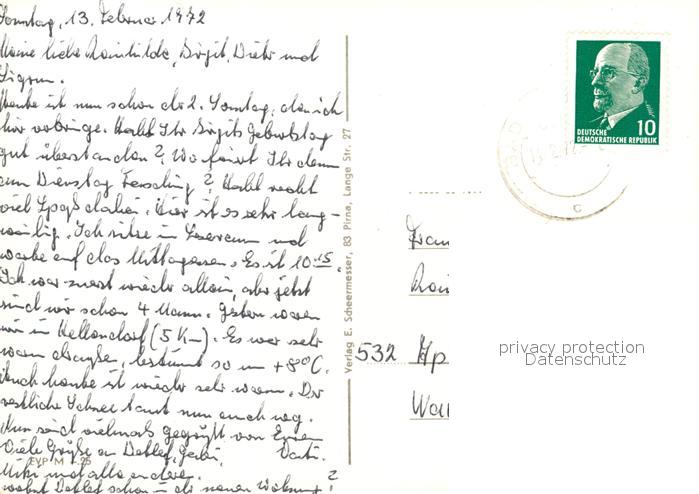 Sonntag, 13. Februar 1972
Meine liebe Rainhilde, Birgit, Dietr und
Sigrun.
Heute ist nun schon der 2. Sonntag, den ich
hier verbringe. Habt Ihr Birgits Geburtstag
gut überstanden? Wo feiert Ihr denn
am Dienstag Fasching? Habt recht
viel Spaß dabei. Hier ist es sehr lang-
weilig. Ich sitze im Leseraum und
warte auf das Mittagessen. Es ist 10.15.
Ich war zuerst wieder allein, aber jetzt
sind wir schon 4 Mann. Gestern waren
wir in Hellendorf (5 Km). Es war sehr
warm draußen, bestimmt so um +8°C.
Auch heute ist wieder sehr warm. Der
restliche Schnee taut nun auch weg.
Nun seid vielmals gegrüßt von Euren
Viele Grüße an Detlef, Vati.
EVP M -.25
und alle andere.
wohnt Detlef schon in der neuen Wohnung?
Verlag E. Scheermesser, 83 Pirna, Lange Str. 27
10
DEUTSCHE
DEMOKRATISCHE REPUBLIK
c
Frau
Rai
532 Ap
privacy protection
Datenschutz